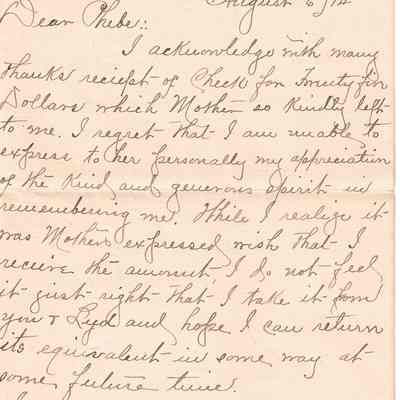 August 6/12
Dear Phebe:
I acknowledge with many
thanks reciept of Check for Twenty five
Dollars which Mother so kindly left
to me. I regret that I am unable to
express to her personally my appreciation
of the Kind and generous spirit in
remembering me. While I realize it
was Mothers expressed wish that I
receive the amount, I do not feel
it just right that I take it from
you & Lyd and hope I can return
its equivalent in some way at
some future time.